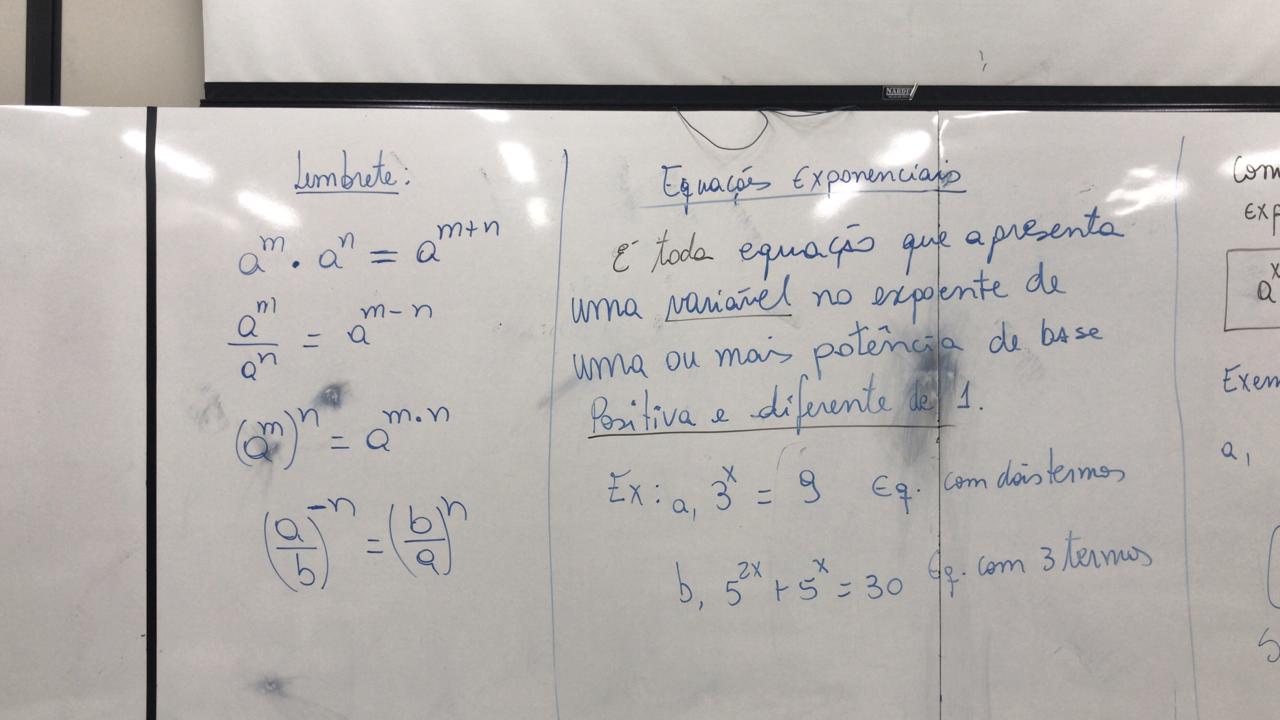 NARDI
Lembrete:
a^m . a^n = a^{m+n}
a^m / a^n = a^{m-n}
(a^m)^n = a^{m.n}
(a/b)^{-n} = (b/a)^n
Equações Exponenciais
É toda equação que apresenta
uma variável no expoente de
uma ou mais potência de base
Positiva e diferente de 1.
Ex: a, 3^x = 9 Eq. com dois termos
b, 5^{2x} + 5^x = 30 Eq. com 3 termos
Com
exp
a^x
Exem
a,